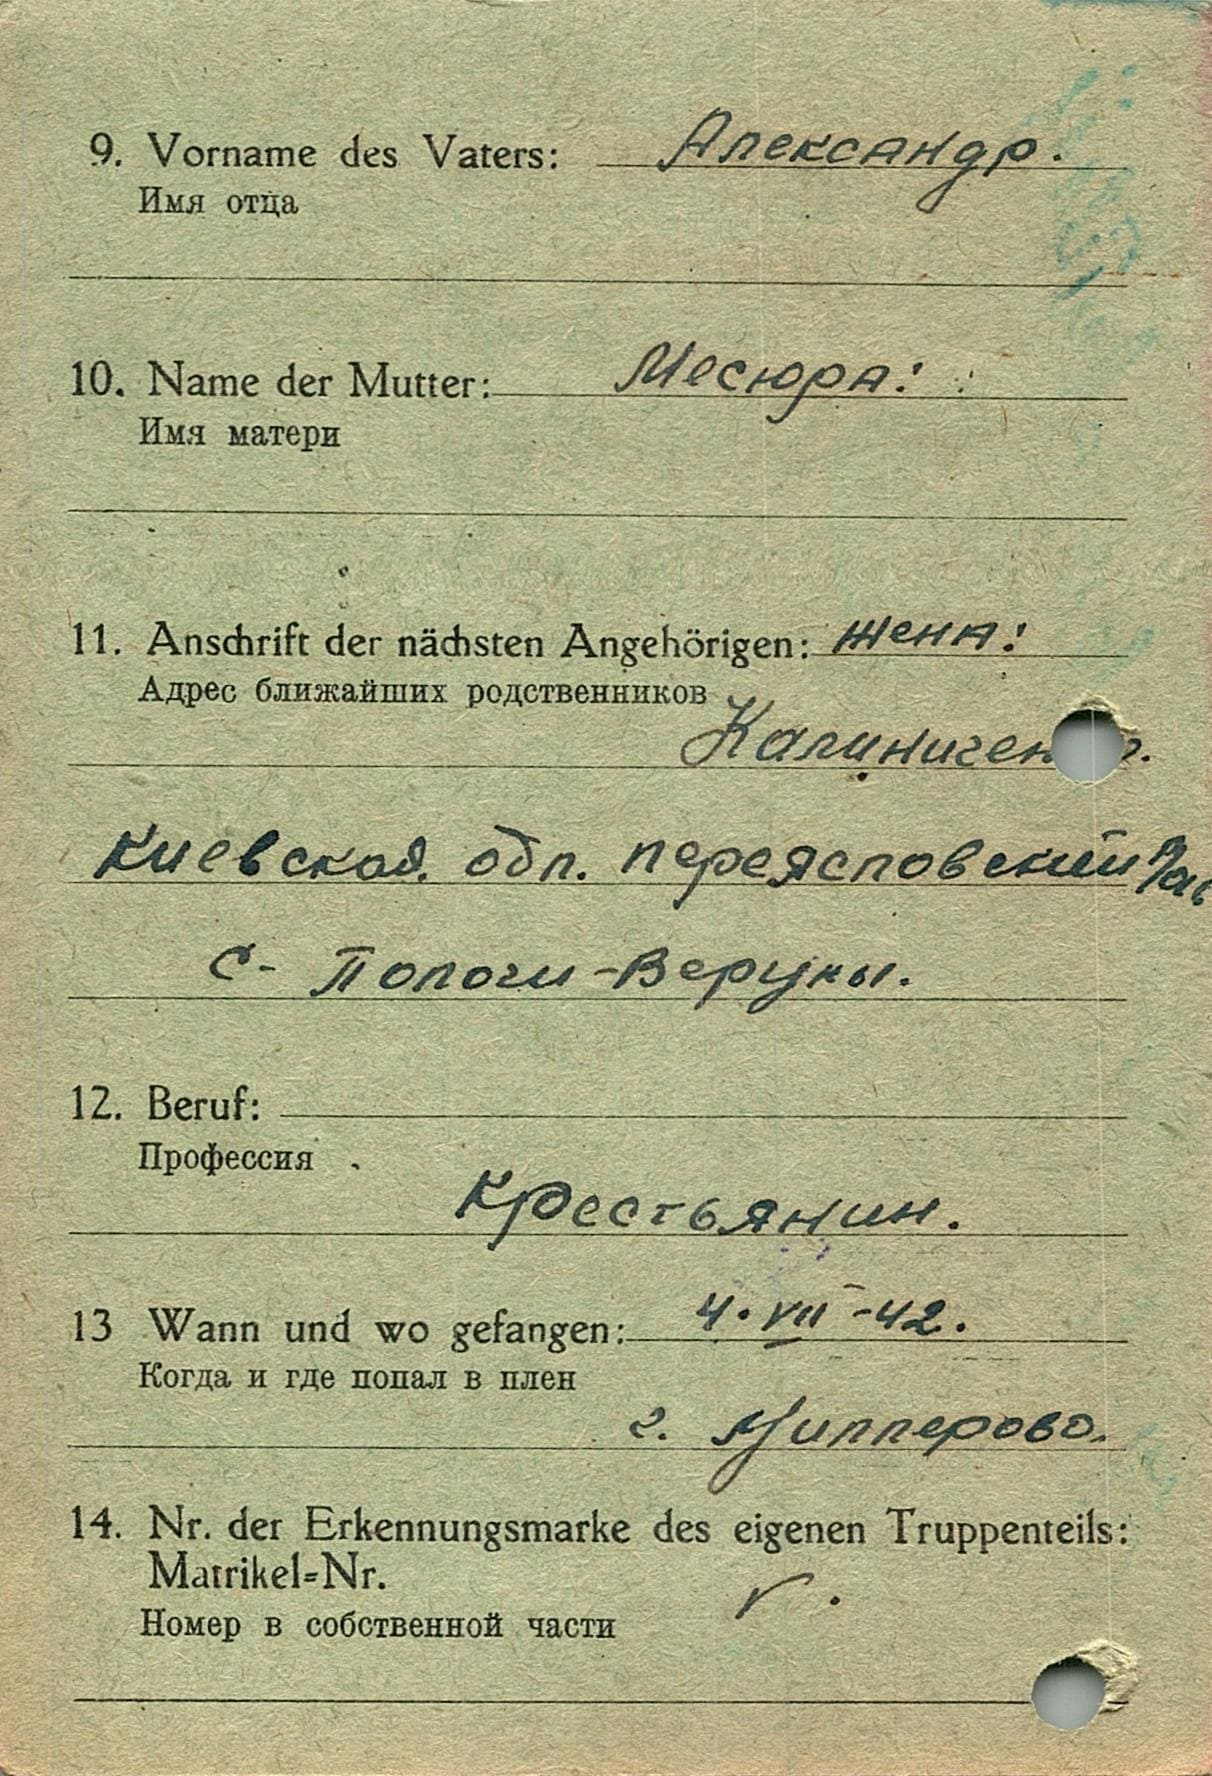 9. Vorname des Vaters: Александр.
Имя отца
10. Name der Mutter: Месюра:
Имя матери
11. Anschrift der nächsten Angehörigen: жена:
Адрес ближайших родственников
Киевская. обл. переясловский
с- Пологи-Вергуны.
12. Beruf:
Профессия
Крестьянин.
13 Wann und wo gefangen: 4. VII -42.
Когда и где попал в плен
г. Миллерово.
14. Nr. der Erkennungsmarke des eigenen Truppenteils:
Matrikel=Nr.
Номер в собственной части